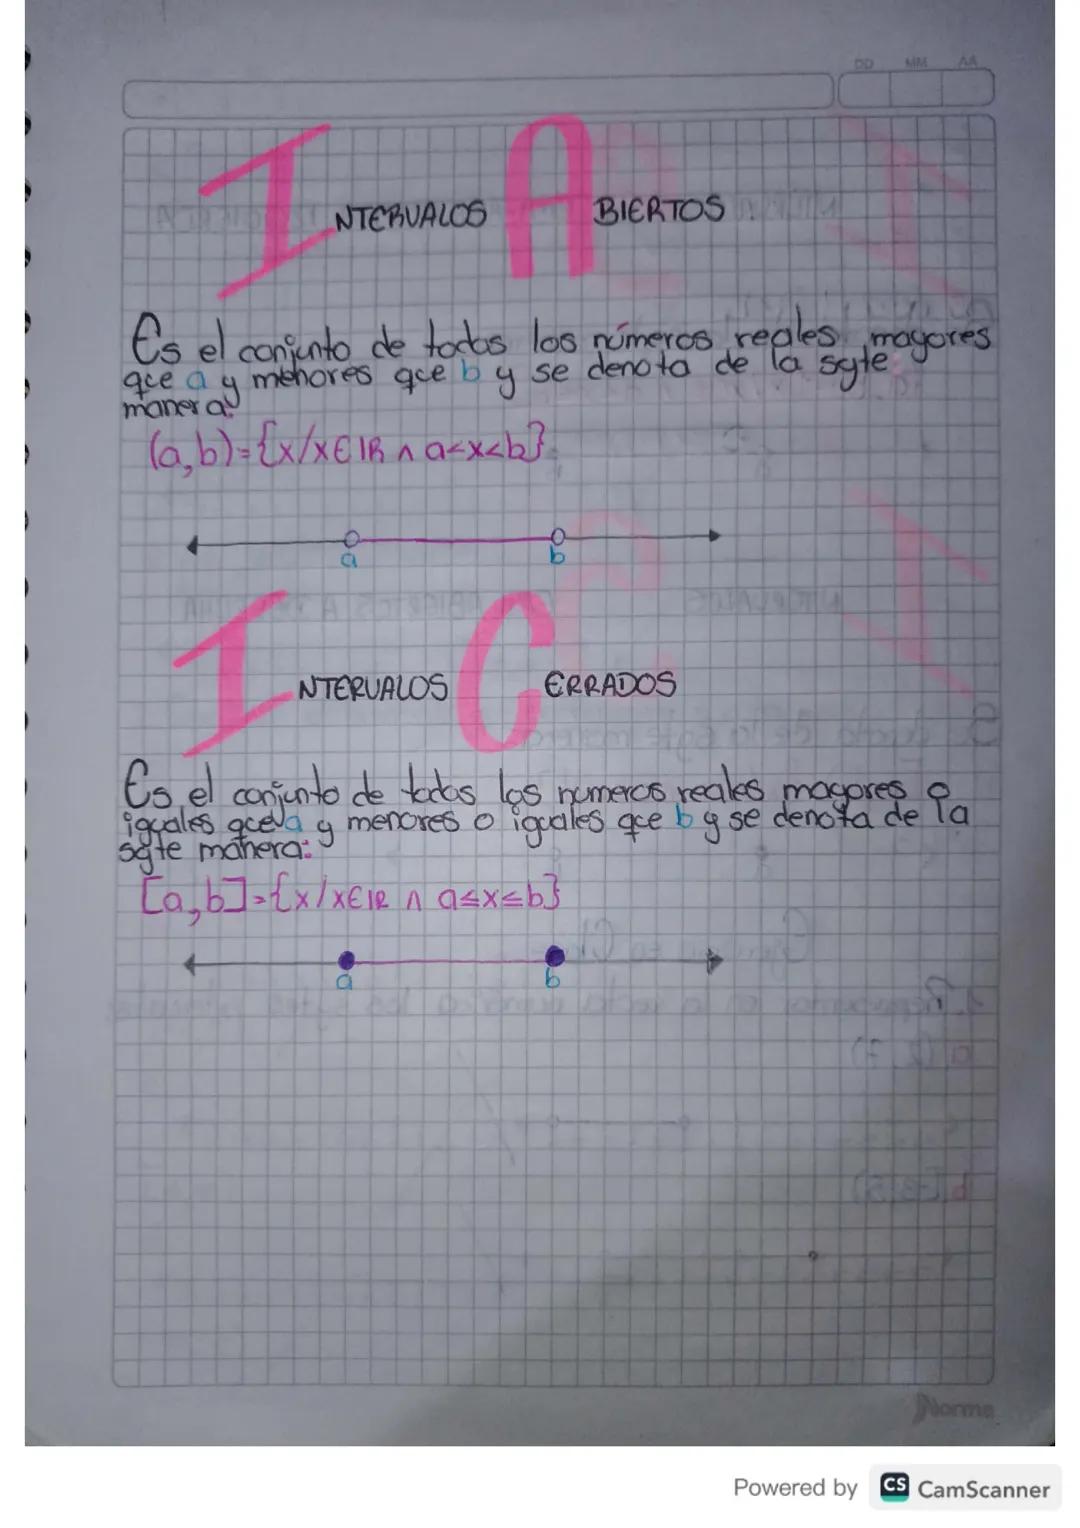 DD MM AA
INTERVALOS ABIERTOS
Es el conjunto de todos los números reales mayores
que a y menores que b y se denota de la sgte
manera:
(a,b)={x/x∈IR ∧ a<x<b}
a b
INTERVALOS CERRADOS
Es el conjunto de todos los numeros reales mayores o
iguales que a y menores o iguales que b y se denota de la
sgte manera:
[a,b]={x/x∈IR ∧ a≤x≤b}
a b
Norma
Powered by CS CamScanner